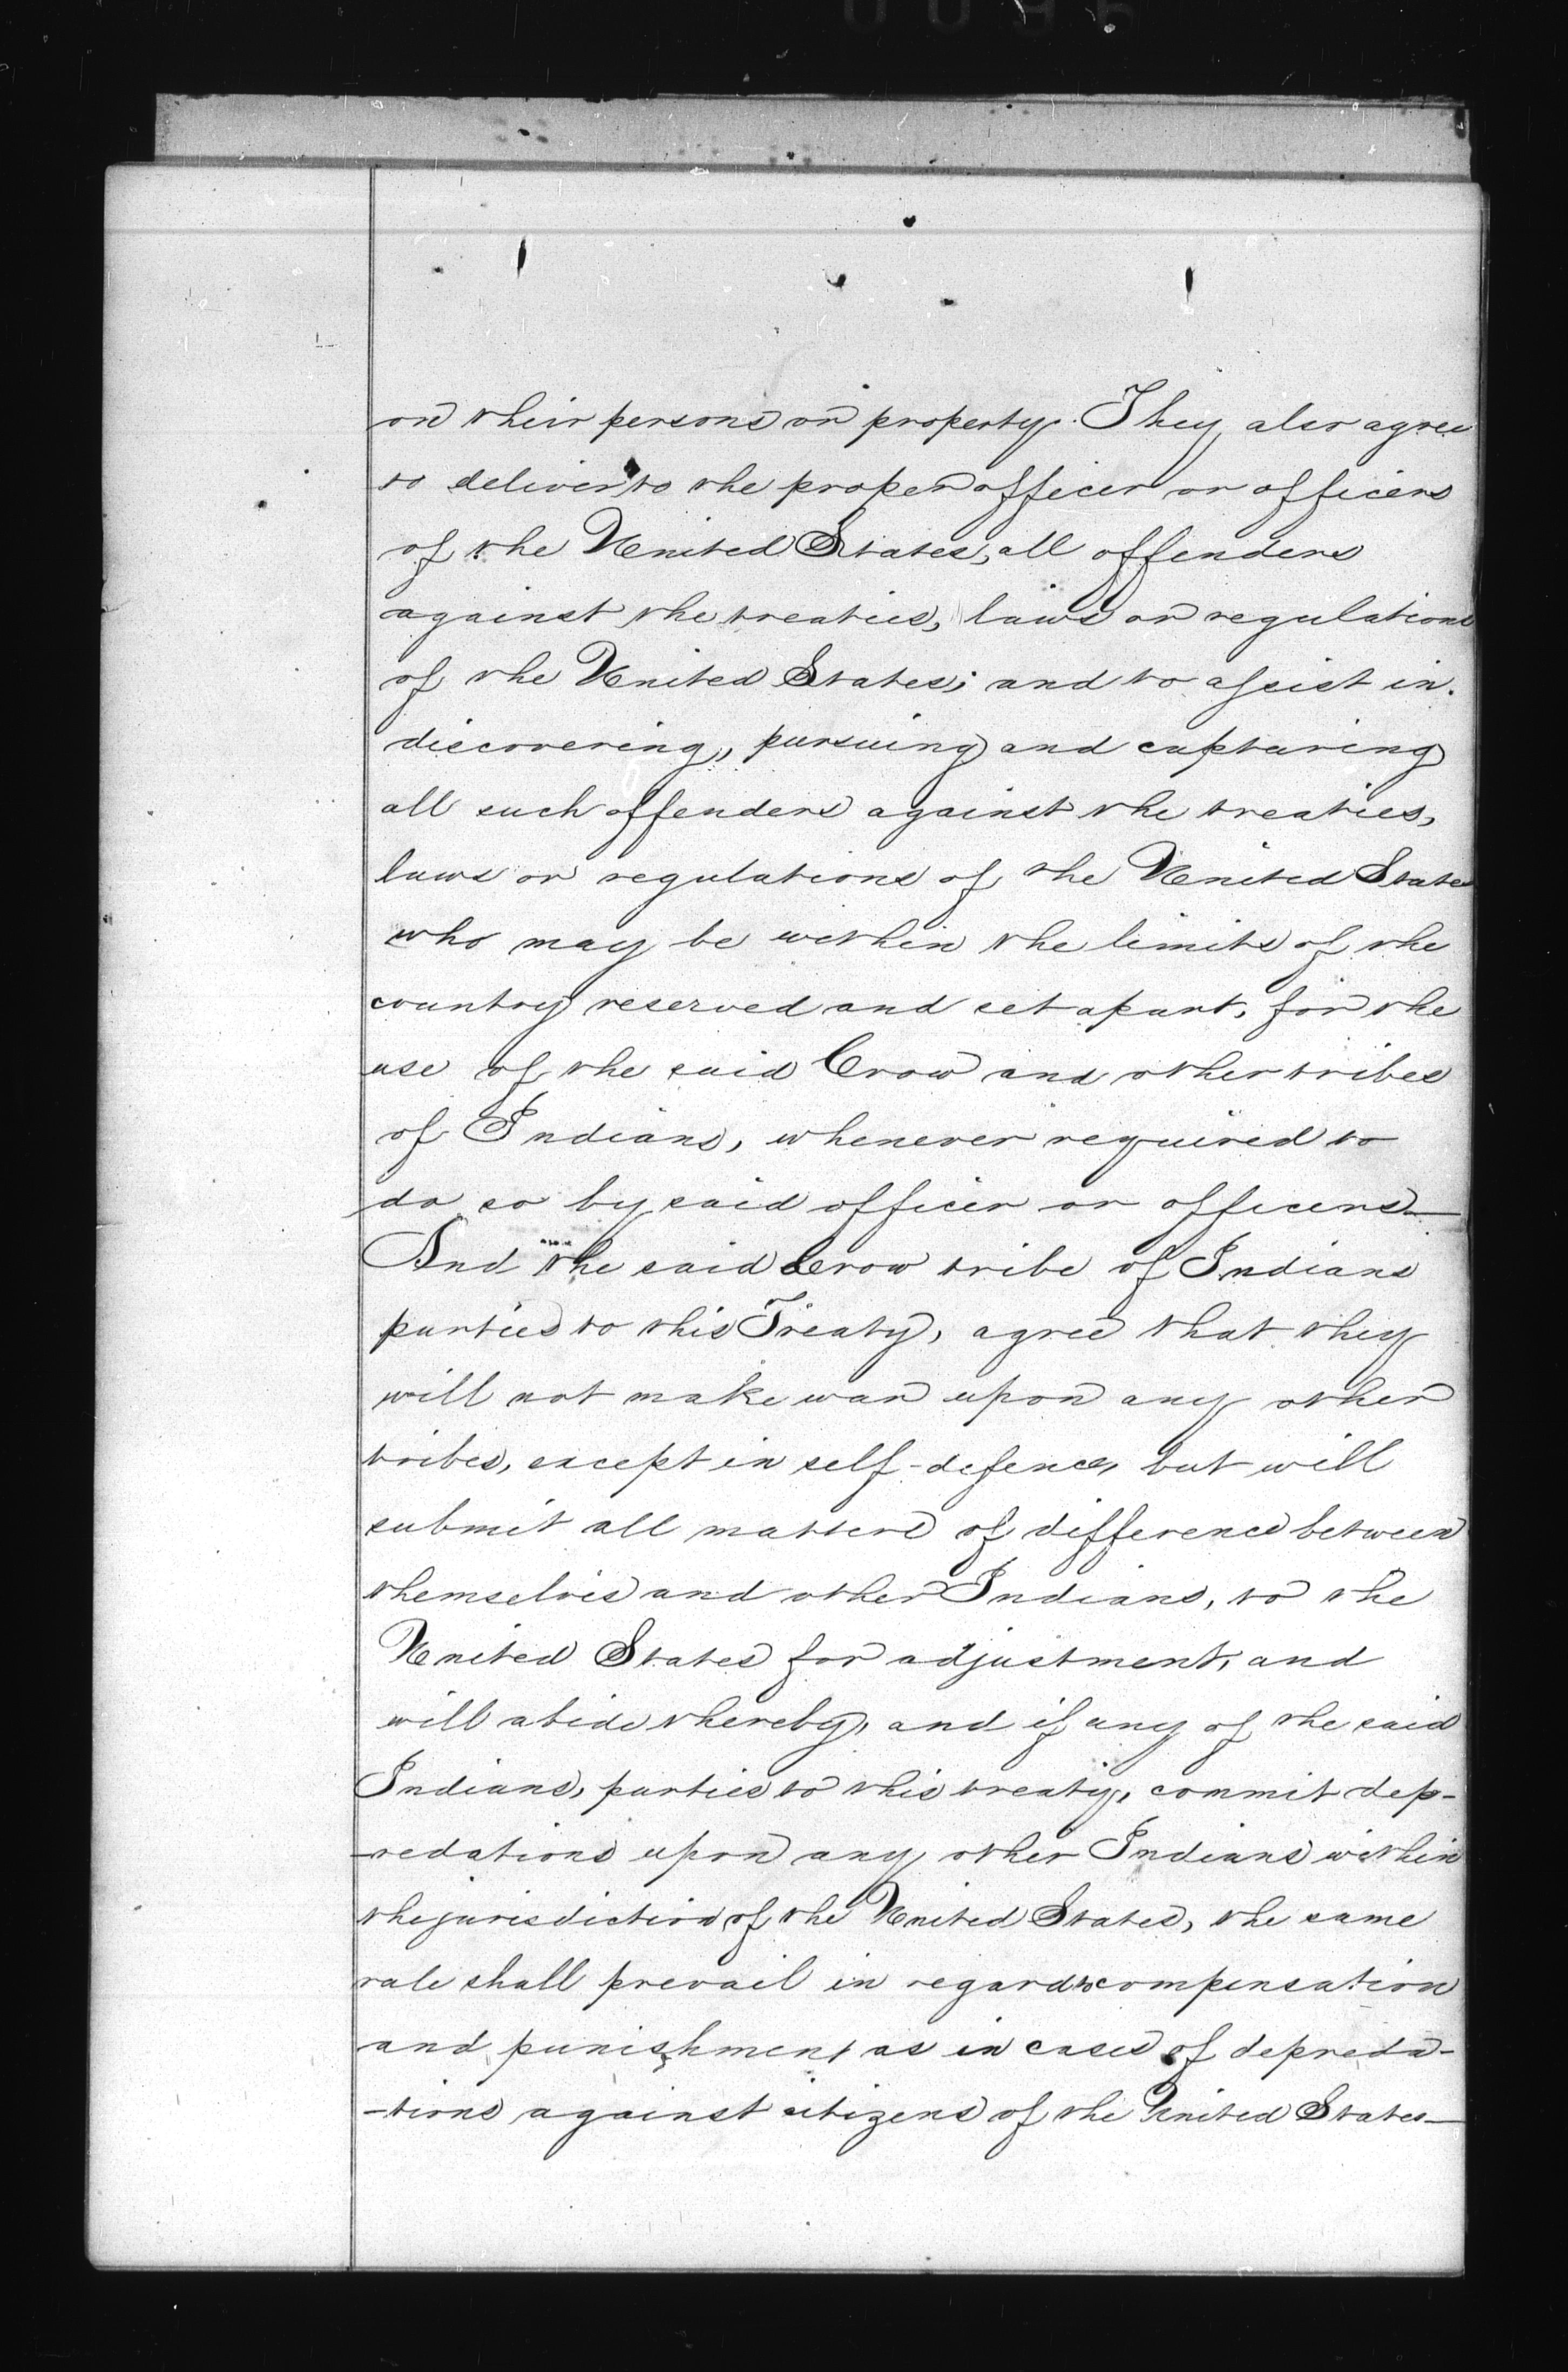 on their persons or property. They also agree
to deliver to the proper officer or officers
of the United States, all offenders
against the treaties, laws or regulations
of the United States; and to assist in
discovering, pursuing and capturing
all such offenders against the treaties,
laws or regulations of the United States
who may be within the limits of the
country reserved and set apart, for the
use of the said Crow and other tribes
of Indians, whenever required to
do so by said officer or officers—
And the said Crow tribe of Indians
parties to this Treaty, agree that they
will not make war upon any other
tribes, except in self-defence, but will
submit all matters of difference between
themselves and other Indians, to the
United States for adjustment, and
will abide thereby, and if any of the said
Indians, parties to this treaty, commit dep-
-redations upon any other Indians within
the jurisdiction of the United States, the same
rule shall prevail in regard to compensation
and punishment as in cases of depreda-
-tions against citizens of the United States—